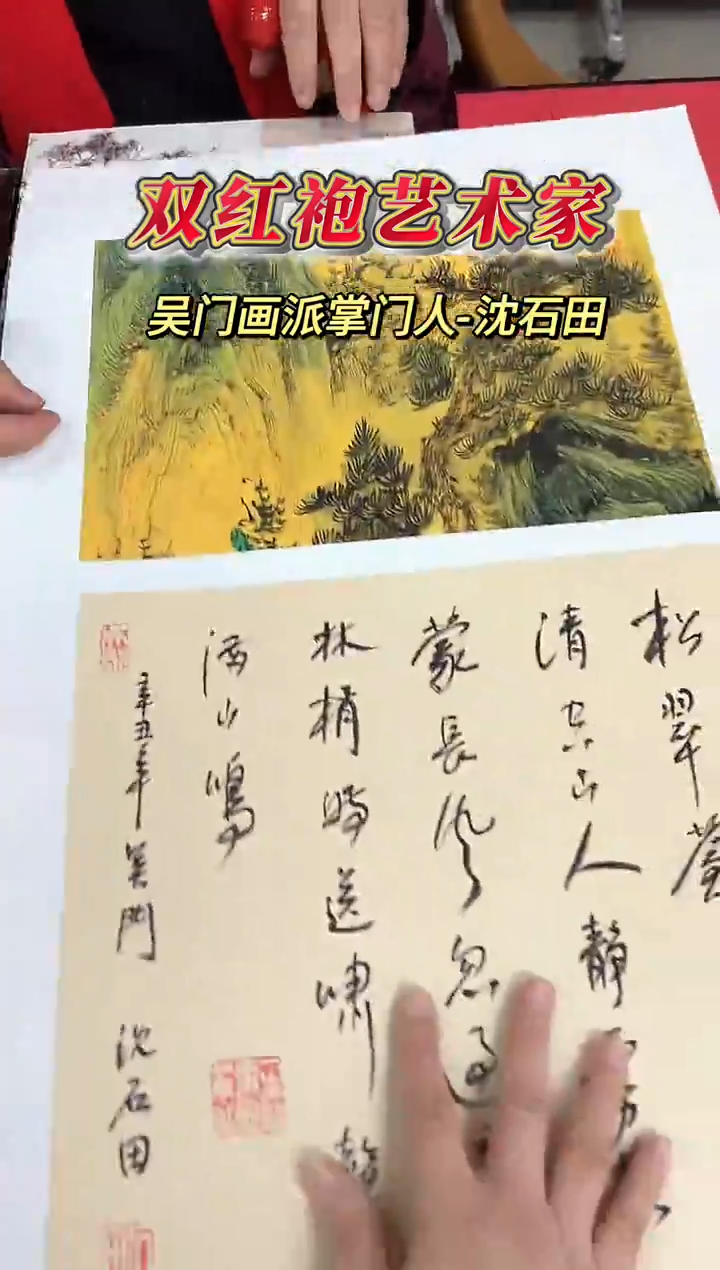 双红袍艺术家
吴门画派掌门人-沈石田
松翠
清空山人静
蒙長风忽过
林梢時送啸
满山鸣
辛丑年吴門 沈石田